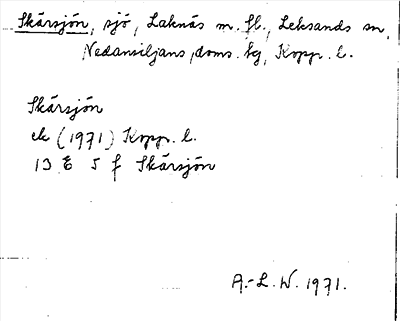 Skärsjön, sjö, Laknäs m.fl., Leksands sn,
Nedansiljans doms. tg, Kopp. l.
Skärsjön
ek (1971) Kopp. l.
13 E 5 f Skärsjön
A.-L. W. 1971.